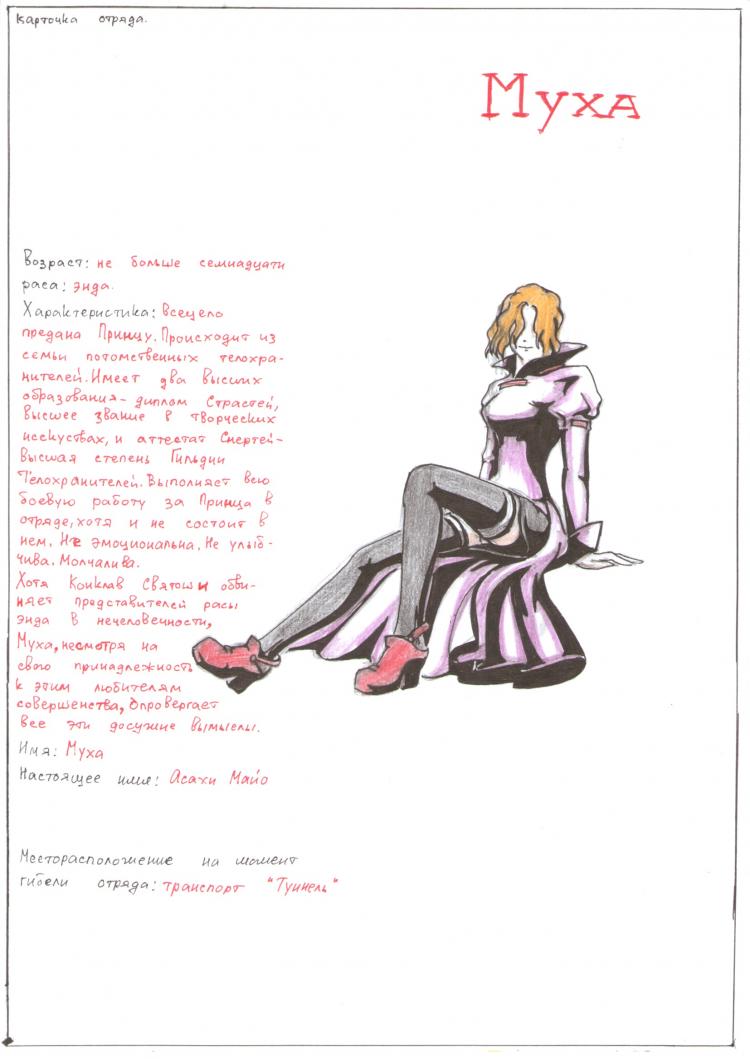 Карточка отряда.
Муха
Возраст: не больше семнадцати
раса: энда.
Характеристика: всецело
предана Принцу. Происходит из
семьи потомственных телохра-
нителей. Имеет два высших
образования - диплом Страстей,
высшее звание в творческих
исскуствах, и аттестат Смертей -
высшая степень Гильдии
Телохранителей. Выполняет всю
боевую работу за Принца в
отряде, хотя и не состоит в
нем. Не эмоциональна. Не улыб-
чива. Молчалива.
Хотя Конклав Святош и обви-
няет представителей расы
энда в нечеловечности,
Муха, несмотря на
свою принадлежность
к этим любителям
совершенства, опровергает
все эти досужие вымыслы.
Имя: Муха
Настоящее имя: Асахи Майо
Месторасположение на момент
гибели отряда: транспорт "Туннель"